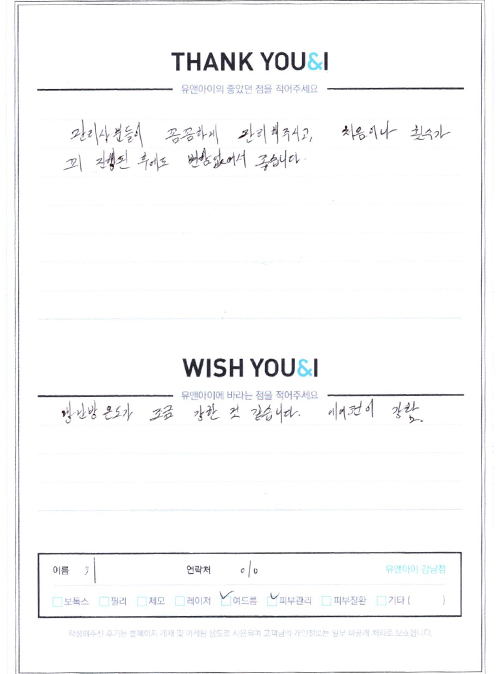 THANK YOU&I
유앤아이의 좋았던 점을 적어주세요
관리사분들이 꼼꼼하게 관리해주시고, 처음이나 횟수가
꽤 진행된 후에도 변함없어서 좋습니다.
WISH YOU&I
유앤아이에 바라는 점을 적어주세요
냉난방 온도가 조금 강한 것 같습니다. 에어컨이 강함.
이름 연락처 010 유앤아이 강남점
보톡스 필러 제모 레이저 여드름 피부관리 피부질환 기타 ( )
작성해주신 후기는 홈페이지 게재 및 마케팅 용도로 사용되며 고객님의 개인정보는 일부 비공개 처리로 보호됩니다.